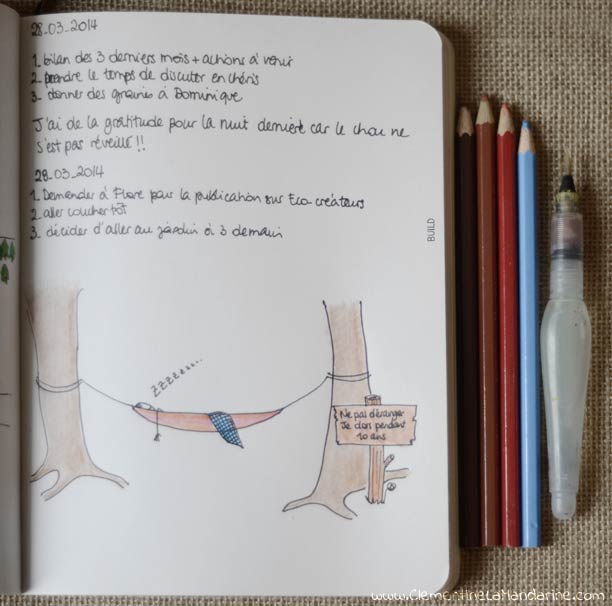 28-03-2014
1. bilan des 3 derniers mois + actions à venir
2. prendre le temps de discuter en chéris
3. donner des graines à Dominique
J'ai de la gratitude pour la nuit dernière car le chou ne
s'est pas réveillé!!
28-03-2014
1. Demander à Flore pour la publication sur Eco-créateurs
2. aller coucher tôt
3. décider d'aller au jardin à 3 demain
BUILD
ZZZZzzz...
Ne pas déranger
Je dors pendant
10 ans
www.ClementineLaMandarine.com